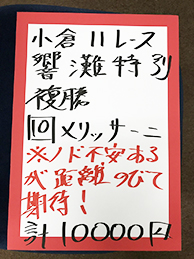 小倉11レース
響灘特別
複勝
10メリッサーニ
※ノド不安ある
が距離のびて
期待!
計10000円